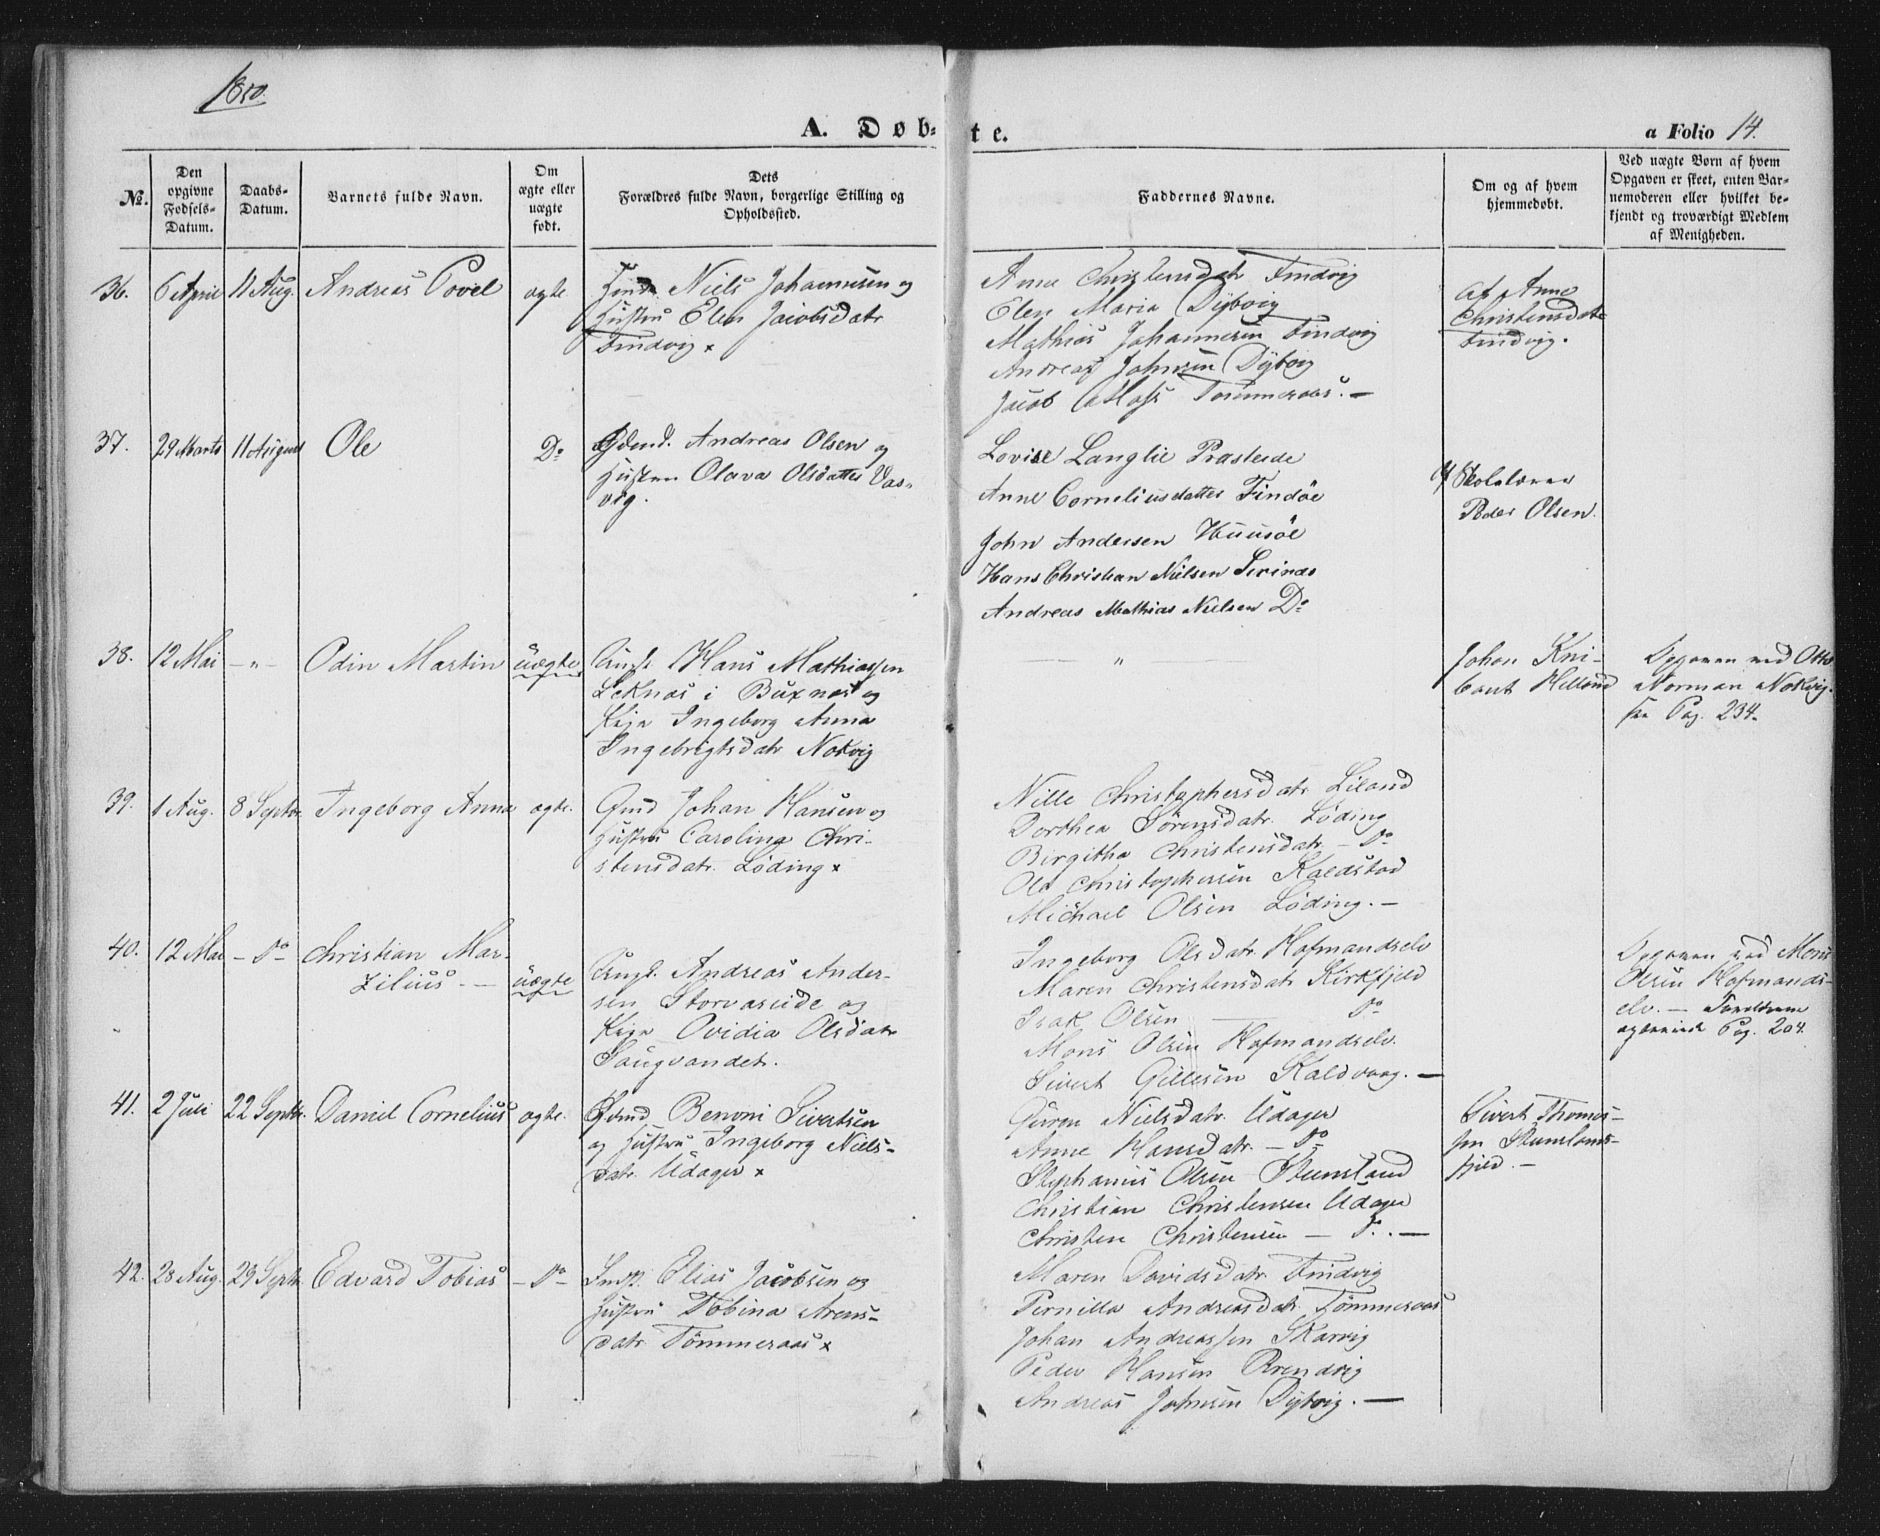 1850.
A. Døb-
te.
a Folio 14.
№.
Den
opgivne
Fødsels-
Datum.
Daabs-
Datum.
Barnets fulde Navn.
Om
ægte eller
uægte
født.
Dets
Forældres fulde Navn, borgerlige Stilling og
Opholdssted.
Faddernes Navne.
Om og af hvem
hjemmedøbt.
Ved uægte Børn af hvem
Opgaven er skeet, enten Bar-
nemoderen eller hvilket be-
kjendt og troværdigt Medlem
af Menigheden.
36.
6 April
11 Aug.
Andreas Povel
ægte
Niels Johannesen og
Hustru Elen Jacobsdatr
Findvig x
Anne Christensdatr Findvig
Elen Maria Dybvig
Mathias Johannesen Findvig
Andreas Johnsen Dybvig
Jacob Tømmeraas. —
af Anne
Christensdatr
Findvig.
37.
29 Marts
11 August
Ole
Do
Andreas Olsen og
Hustru Olava Olsdatter Vas-
vig.
Lovise Langlie Præsteide
Anne Corneliusdatter Findöe
John Andersen Huusöe
Hans Christian Nielsen Serinæs
Andreas Mathias Nielsen Do
af Skolelærer
Peder Olsen.
38.
12 Mai
— " —
Odin Martin
uægte
Ungk. Hans Mathiassen
Leknæs i Buxnæs og
Pige Ingeborg Anna
Ingebrigtsdatr Nokvig
— " —
Johan Kni-
Helland
Opgaven ved Otto
Norman Nokvig.
see Pag. 234.
39.
1 Aug.
8 Septbr.
Ingeborg Anna
ægte.
Gmd Johan Hansen og
Hustru Carolina Chri-
stensdatr. Løding x
Nille Christophersdatr Liland
Dorthea Sörensdatr. Løding
Birgitha Christensdatr — Do
Ole Christophersen Kaldstad
Michael Olsen Løding. —
40.
12 Mai
— Do
Christian Mar-
zilius. —
uægte
Ungk. Andreas Ander-
sen Storvaseide og
Pige Ovidia Olsdatr
Saugvandet.
Ingeborg Olsdatr Hofmandselv
Maren Christensdatr Kirkfjeld
Isak Olsen — Do
Mons Olsen Hofmandselv.
Sivert Gillesen Kaldvaag. —
Opgaven ved Mons
Olsen Hofmands-
elv. — Forældrene
Pag. 204.
41.
2 Juli
22 Septbr.
Daniel Cornelius
ægte.
Gmd Benoni Sivertsen
og Hustru Ingeborg Niels-
datr. Udager x
Nielsdatr. Udager
Anne Hansdatr. — Do
Stephanus Olsen Stensland
Christian Christensen Udager
Christen Christensen — Do. —
Sivert Thomes-
sen Stenslans-
fjeld. —
42.
28 Aug.
29 Septbr.
Edvard Tobias
— Do —
Elias Jacobsen og
Hustru Tobina Arens-
datr. Tömmeraas x
Maren Davidsdatr. Findvig
Pernilla Andreasdatr. Tömmeraas
Johan Andreassen Skarvig
Peder Hansen Rrendvig
Andreas Johnsen Dybvig. —